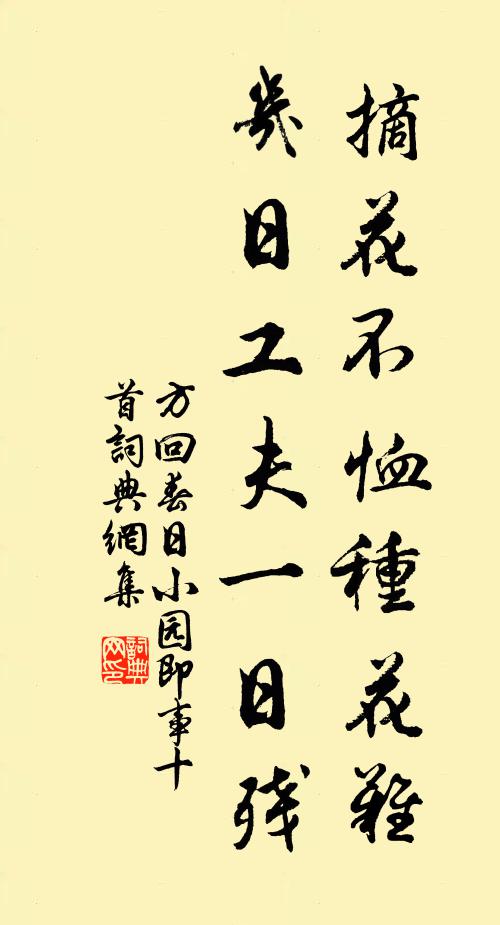 摘花不恤種花難
幾日工夫一日残
方回春日小园即事十
首詞典網集
詞典
网印